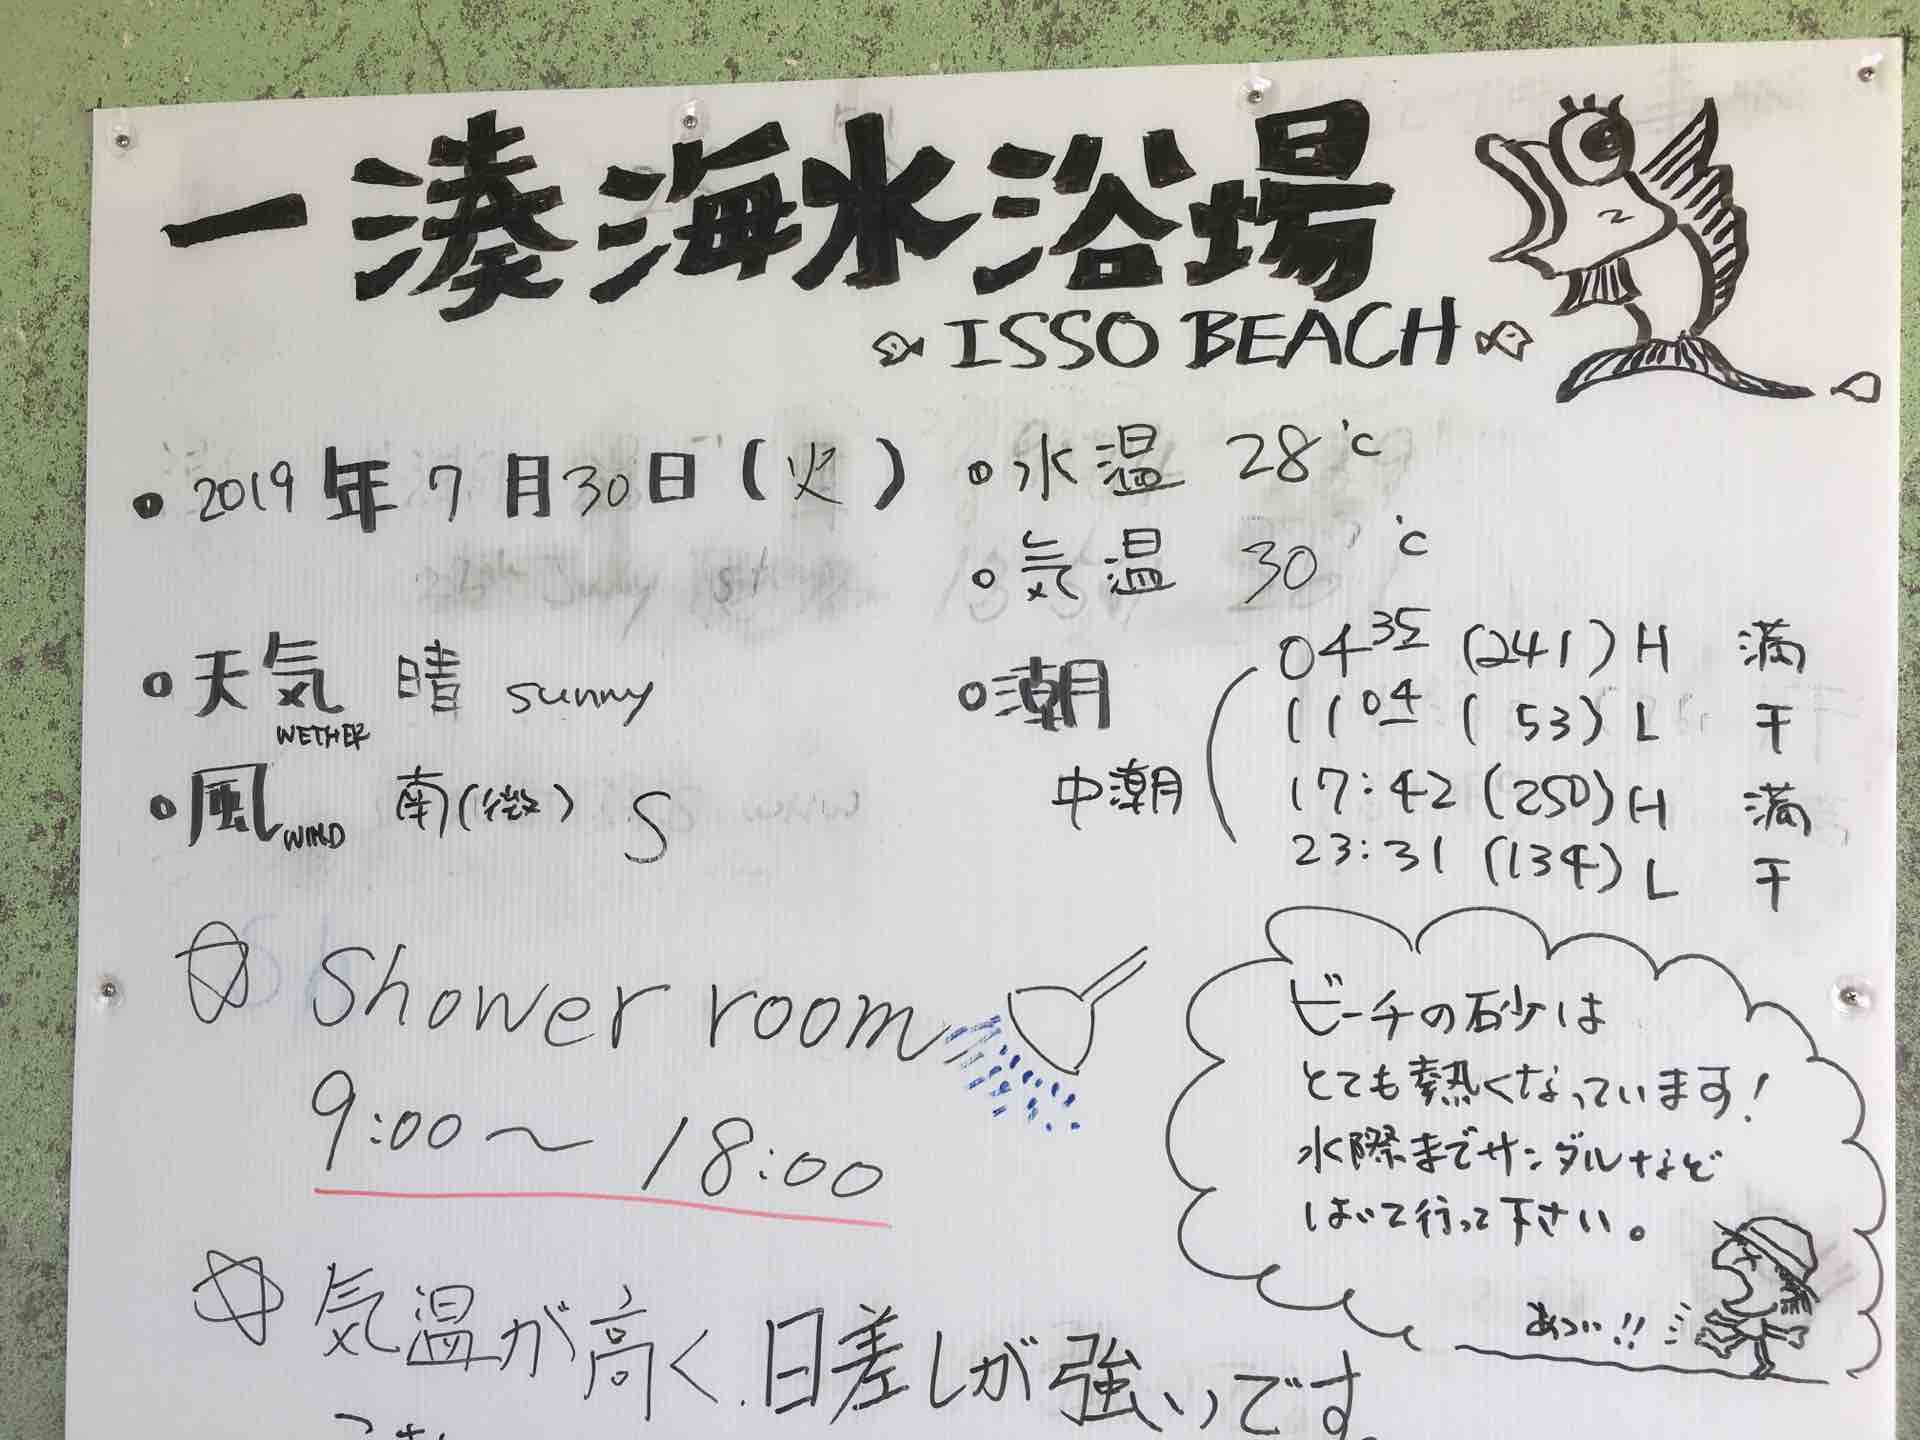 一湊海水浴場
ISSO BEACH
2019年7月30日(火)
水温 28℃
気温 30℃
天気 晴 sunny
WETHER
風 南(微) S
WIND
潮
中潮
04 35 (241) H 満
11 04 (53) L 干
17:42 (250) H 満
23:31 (134) L 干
Shower room
9:00～18:00
ビーチの砂は
とても熱くなっています!
水際までサンダルなど
はいて行って下さい。
あつい!!
気温が高く、日差しが強いです